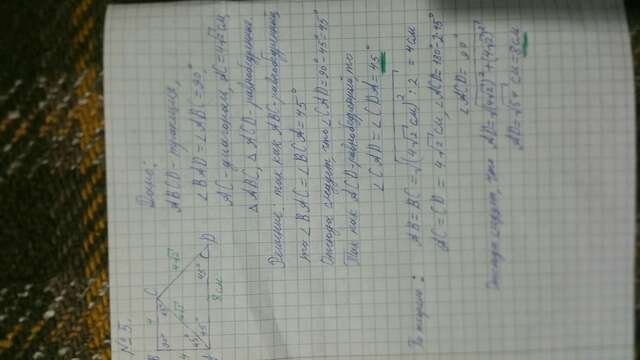 №5.
B
4
C
45°
4√2
45°
D
8 см
Дано:
ABCD - трапеция,
∠BAD = ∠ABC = 90°
AC - диагональ, AC = 4√2 см,
△ABC, △ACD - равнобедренные.
Решение: так как ABC - равнобедренный,
то ∠BAC = ∠BCA = 45°
Отсюда следует, что ∠CAD = 90° - 45° = 45°
Так как ACD - равнобедренный, то
∠CAD = ∠CDA = 45°
По теореме:
AB = BC = √(4√2 см)² : 2 = 4 см
AC = CD = 4√2 см, ∠ACD = 180° - 2·45°
∠ACD = 90°
Отсюда следует, что AD = √(4√2)² + (4√2)²
AD = √64 см = 8 см